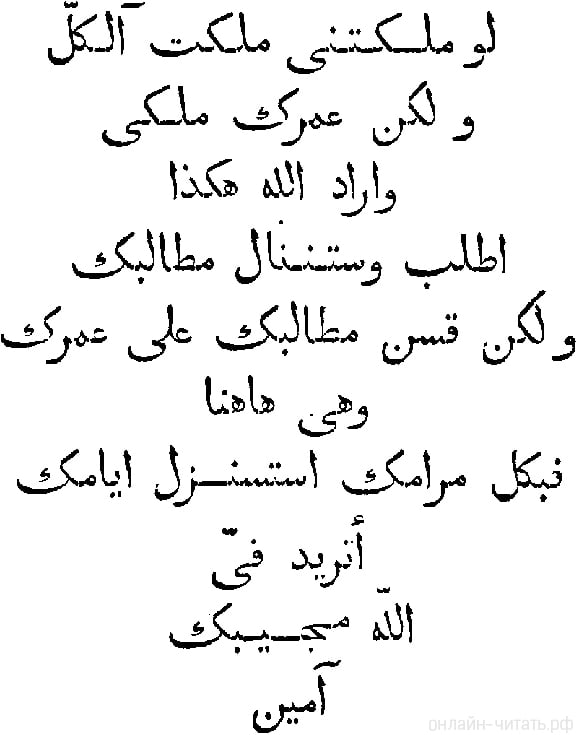 لو ملكتنى ملكت آلكلّ
و لكن عمرك ملكى
واراد الله هكذا
اطلب وستننال مطالبك
ولكن قسن مطالبك على عمرك
وهى هاهنا
فبكل مرامك استسنزل ايامك
أتريد فىّ
اللّه مجيبك
آمين
онлайн-читать.рф